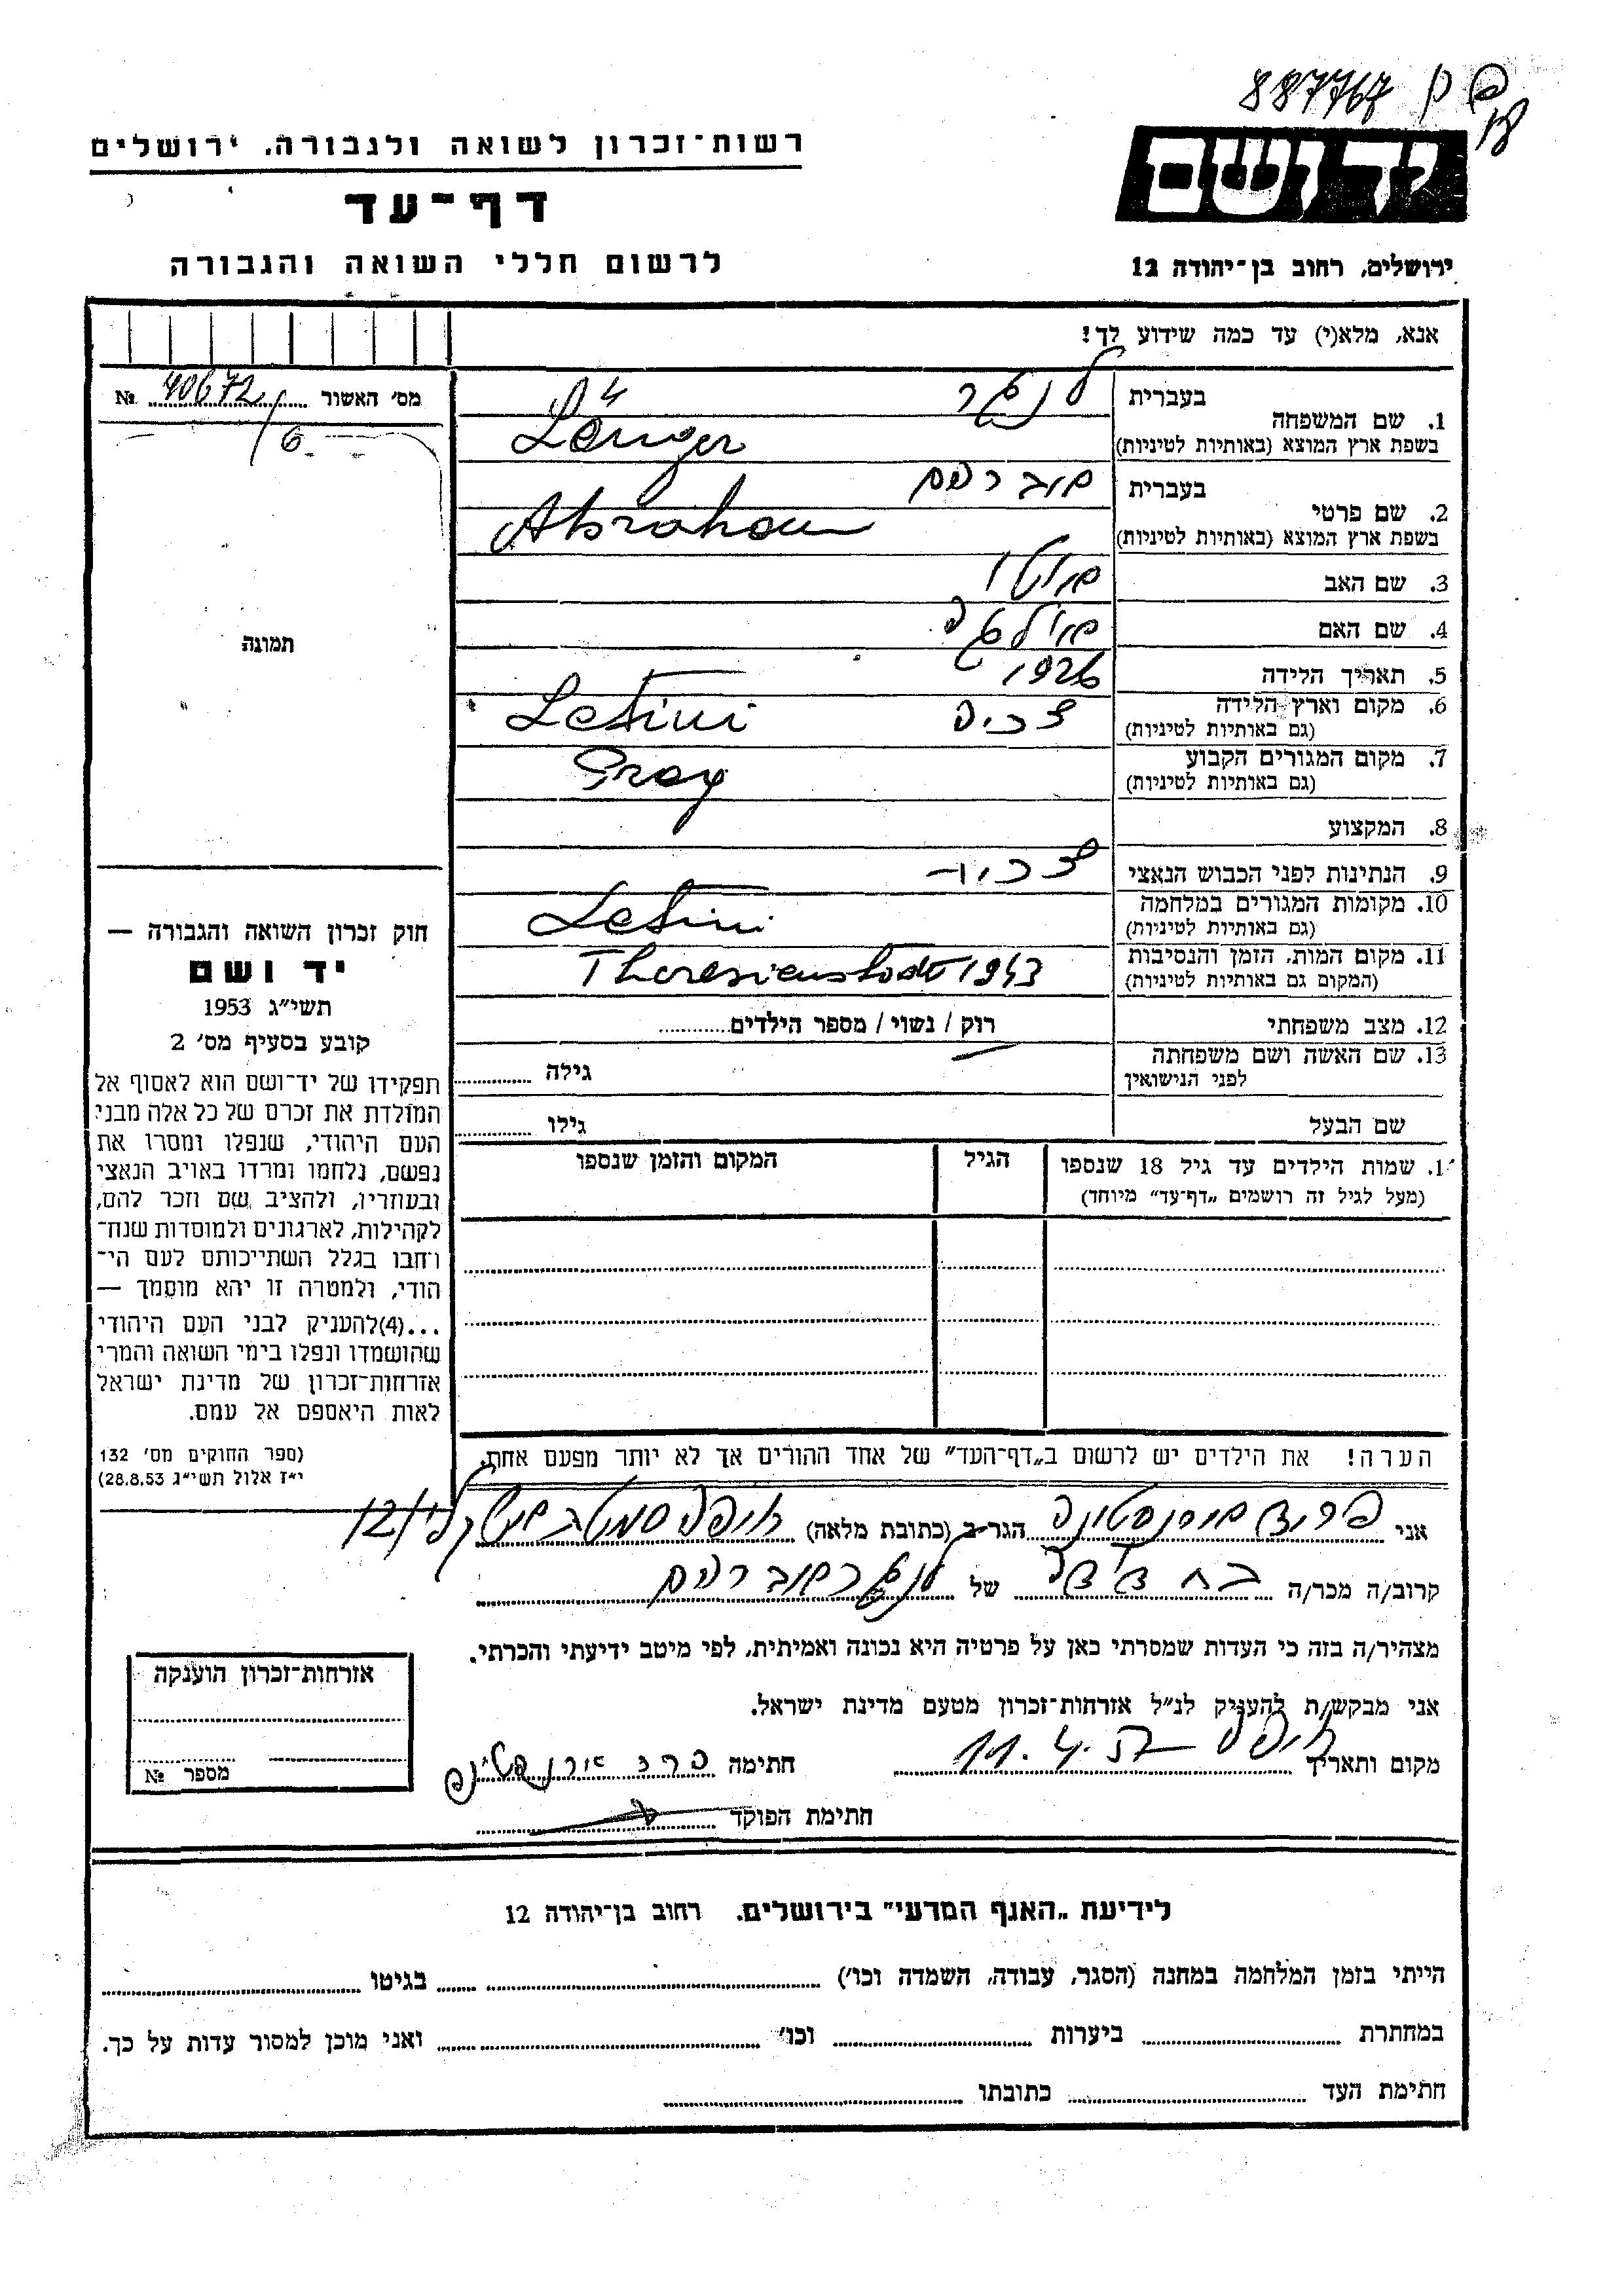 887767
רשות־זכרון לשואה ולגבורה, ירושלים
דף־עד
לרשום חללי השואה והגבורה
יד ושם
ירושלים, רחוב בן־יהודה 12
אנא, מלא(י) עד כמה שידוע לך!
מס׳ האשור 40672 №
6
תמונה
1. שם המשפחה בעברית לנגר
בשפת ארץ המוצא (באותיות לטיניות) Länger
2. שם פרטי בעברית אברהם
בשפת ארץ המוצא (באותיות לטיניות) Abraham
3. שם האב
4. שם האם
5. תאריך הלידה 1926
6. מקום וארץ הלידה (גם באותיות לטיניות) צכיה Letini
7. מקום המגורים הקבוע (גם באותיות לטיניות) Prag
8. המקצוע
9. הנתינות לפני הכבוש הנאצי
10. מקומות המגורים במלחמה (גם באותיות לטיניות) Letini
11. מקום המות, הזמן והנסיבות (המקום גם באותיות לטיניות) Theresienstadt 1943
12. מצב משפחתי רוק / נשוי / מספר הילדים
13. שם האשה ושם משפחתה לפני הנישואין גילה
שם הבעל גילו
1. שמות הילדים עד גיל 18 שנספו הגיל המקום והזמן שנספו
(מעל לגיל זה רושמים „דף־עד” מיוחד)
הערה! את הילדים יש לרשום ב„דף־העד” של אחד ההורים אך לא יותר מפעם אחת.
חוק זכרון השואה והגבורה —
יד ושם
תשי״ג 1953
קובע בסעיף מס׳ 2
תפקידו של יד־ושם הוא לאסוף אל
המולדת את זכרם של כל אלה מבני
העם היהודי, שנפלו ומסרו את
נפשם, נלחמו ומרדו באויב הנאצי
ובעוזריו, ולהציב שם וזכר להם,
לקהילות, לארגונים ולמוסדות שנח־
רחבו בגלל השתייכותם לעם הי־
הודי, ולמטרה זו יהא מוסמך —
...(4)להעניק לבני העם היהודי
שהושמדו ונפלו בימי השואה והמרי
אזרחות־זכרון של מדינת ישראל
לאות היאספם אל עמם.
(ספר החוקים מס׳ 132
י״ז אלול תשי״ג 28.8.53)
אני הגר ב (כתובת מלאה) חיפה 12/
קרוב/ה מכר/ה של לנגר אברהם
מצהיר/ה בזה כי העדות שמסרתי כאן על פרטיה היא נכונה ואמיתית, לפי מיטב ידיעתי והכרתי.
אני מבקש/ת להעניק לנ״ל אזרחות־זכרון מטעם מדינת ישראל.
מקום ותאריך חיפה 11.4.57 חתימה
חתימת הפוקד
אזרחות־זכרון הוענקה
מספר №
לידיעת „האגף המדעי” בירושלים, רחוב בן־יהודה 12
הייתי בזמן המלחמה במחנה (הסגר, עבודה, השמדה וכו׳) בגיטו
במחתרת ביערות וכו׳ ואני מוכן למסור עדות על כך.
חתימת העד כתובתו